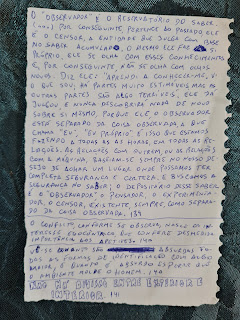 "O OBSERVADOR" É O RESERVATÓRIO DO SABER.
(...) POR CONSEGUINTE PERTENCE AO PASSADO, ELE
É O CENSOR, A ENTIDADE QUE JULGA COM BASE
NO SABER ACUMULADO, O MESMO ELE FAZ A SI
PRÓPRIO. ELE SE OLHA COM ESSES CONHECIMENTOS
E, POR CONSEGUINTE NÃO SE OLHA COM OLHOS
NOVOS. DIZ ELE: "APRENDI A CONHECER-ME, SEI
O QUE SOU, HÁ PARTES MUITO ESTIMÁVEIS MAS AS
OUTRAS PARTES SÃO TERRÍVEIS. ELE JÁ
JULGOU E NUNCA DESCOBRIRÁ NADA DE NOVO
SOBRE SI MESMO PORQUE ELE, O OBSERVADOR,
ESTÁ SEPARADO DA COISA OBSERVADA, A QUE
CHAMA "EU", "EU PRÓPRIO". É ISSO QUE ESTAMOS
FAZENDO A TODAS AS HORAS, EM TODAS AS RE-
LAÇÕES. AS RELAÇÕES COM OUTREM, OU AS RELAÇÕES
COM A MÁQUINA, BASEIAM-SE SEMPRE NO NOSSO DE-
SEJO DE ACHAR UM LUGAR, ONDE POSSAMOS TER
COMPLETA SEGURANÇA E CERTEZA. E BUSCAMOS A
SEGURANÇA NO SABER; O DEPOSITÁRIO DESSE SABER
É O "OBSERVADOR", O PENSADOR, O EXPERIMENTA-
DOR, O CENSOR, EXISTENTE, SEMPRE, COMO SEPARA-
DO DA COISA OBSERVADA. 139
O CONFLITO, CONFORME SE OBSERVA, NASCE DO IN-
TERESSE EGOCÊNTRICO QUE CONFERE DESMEDIDA
IMPORTÂNCIA AOS APETITES. 140
ABSURDAS TO-
DAS AS FORMAS DE IDENTIFICAÇÃO COM ALGO
MAIOR, E QUANTO É ABSURDO ESPERAR QUE
O AMBIENTE MOLDE O HOMEM. 140
NÃO HÁ DIVISÃO ENTRE EXTERIOR E
INTERIOR. 141